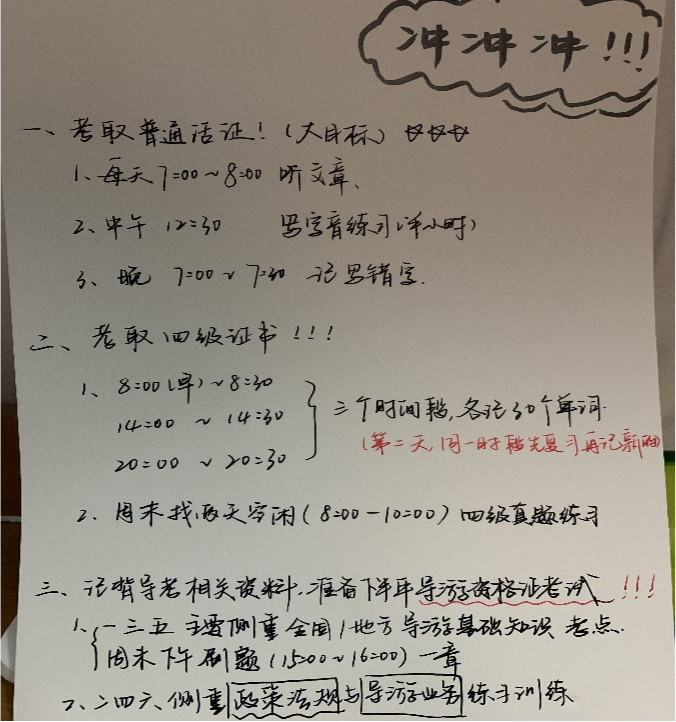 冲冲冲!!!
一、考取普通话证!(大目标)☆☆☆
1、每天7:00~8:00 听文章、
2、中午 12:30 写字音练习(半小时)
3、晚 7:00~7:30 记易错字.
二、考取四级证书!!!
1、8:00(早)~8:30
14:00 ~ 14:30
20:00 ~ 20:30
三个时间段,各记30个单词.
(第二天,同一时段先复习再记新的)
2、周末找两天空闲(8:00-10:00)四级真题练习
三、记背导考相关资料,准备下半年导游资格证考试!!!
1、一三五 主要侧重全国/地方导游基础知识 考点.
周末下午刷题(15:00~16:00)一章
2、二四六、侧重政策法规与导游业务练习训练